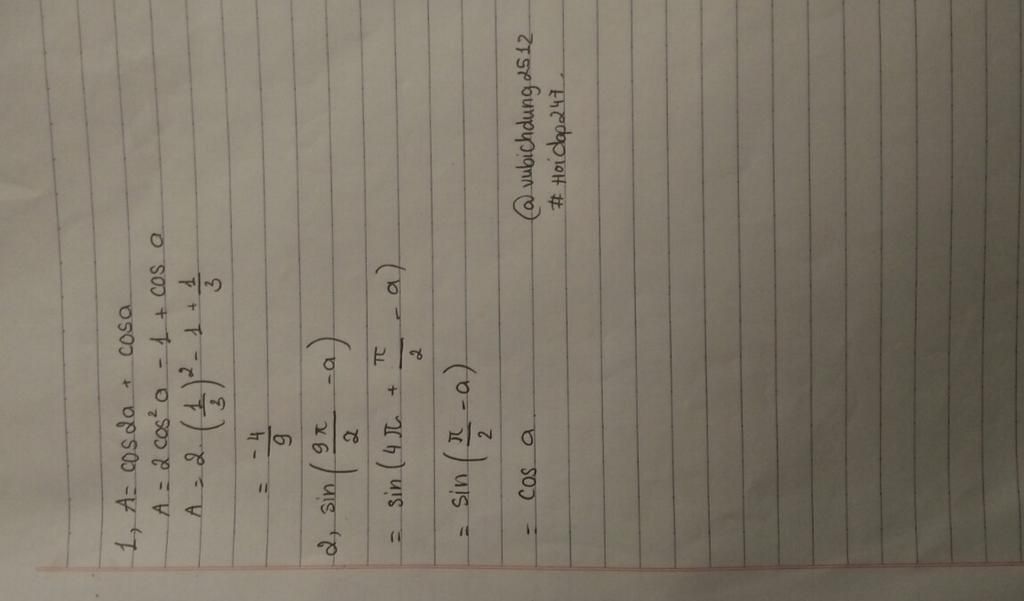 1, A = cos2a + cosa
A = 2cos²a - 1 + cos a
A = 2. (1/3)² - 1 + 1/3
= -4/9
2, sin(9π/2 - a)
= sin(4π + π/2 - a)
= sin(π/2 - a)
= cos a
@vubichdung2512
#Hoidap247.